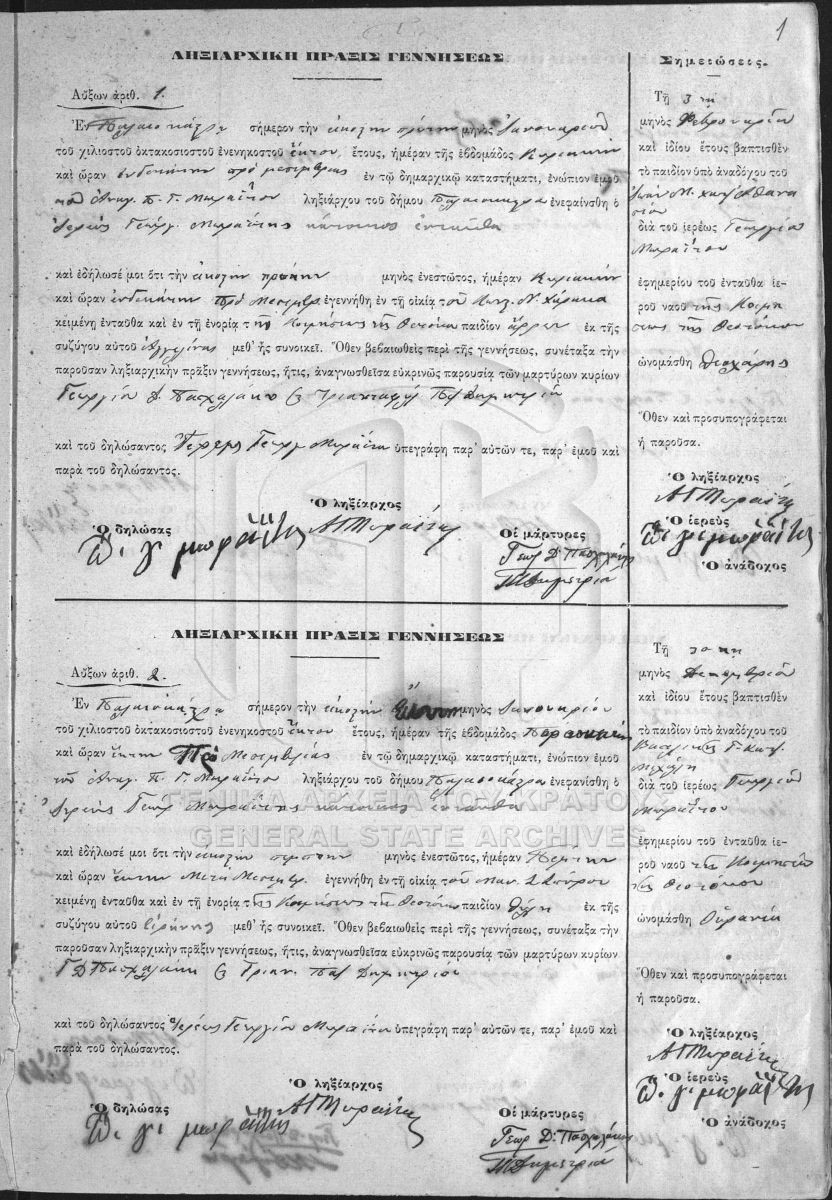 1
ΛΗΞΙΑΡΧΙΚΗ ΠΡΑΞΙΣ ΓΕΝΝΗΣΕΩΣ
Αὔξων ἀριθ. 1.
Ἐν σήμερον τὴν εἰκοστὴν πρώτην μηνὸς Ἰανουαρίου
τοῦ χιλιοστοῦ ὀκτακοσιοστοῦ ἐνενηκοστοῦ ἕκτου ἔτους, ἡμέραν τῆς ἑβδομάδος Κυριακὴν
καὶ ὥραν ἑνδεκάτην πρὸ μεσημβρίας ἐν τῷ δημαρχικῷ καταστήματι, ἐνώπιον ἐμοῦ
τοῦ Π. Γ. Μωραΐτου ληξιάρχου τοῦ δήμου ἐνεφανίσθη ὁ
Ἱερεὺς Γεώργ. Μωραΐτης κάτοικος ἐνταῦθα
καὶ ἐδήλωσέ μοι ὅτι τὴν εἰκοστὴν πρώτην μηνὸς ἐνεστῶτος, ἡμέραν Κυριακὴν
καὶ ὥραν ἑνδεκάτην πρὸ Μεσημβρ. ἐγεννήθη ἐν τῇ οἰκίᾳ τοῦ Ν.
κειμένῃ ἐνταῦθα καὶ ἐν τῇ ἐνορίᾳ τῆς Κοιμήσεως τῆς Θεοτόκου παιδίον ἄρρεν ἐκ τῆς
συζύγου αὐτοῦ μεθ' ἧς συνοικεῖ. Ὅθεν βεβαιωθεὶς περὶ τῆς γεννήσεως, συνέταξα τὴν
παροῦσαν ληξιαρχικὴν πρᾶξιν γεννήσεως, ἥτις, ἀναγνωσθεῖσα εὐκρινῶς παρουσίᾳ τῶν μαρτύρων κυρίων
Γεωργίου Δ. Πασχαλάκη Δημητρίου
καὶ τοῦ δηλώσαντος Ἱερέως Γεωργ Μωραΐτου ὑπεγράφη παρ' αὐτῶν τε, παρ' ἐμοῦ καὶ
παρὰ τοῦ δηλώσαντος.
Ὁ ληξίαρχος
Ὁ δηλώσας ΑΠΜωραΐτης Οἱ μάρτυρες
γ. μωραΐτης Γεωρ Δ. Πασχαλάκης
Δημητρίου
Σημειώσεις.
Τῇ 3 ῃ
μηνὸς Φεβρουαρίου
καὶ ἰδίου ἔτους βαπτισθὲν
τὸ παιδίον ὑπὸ ἀναδόχου τοῦ
Μ.
διὰ τοῦ ἱερέως Γεωργίου
Μωραΐτου
ἐφημερίου τοῦ ἐνταῦθα ἱε-
ροῦ ναοῦ τῆς Κοιμή
σεως τῆς Θεοτόκου
ὠνομάσθη Θεοχάρης
Ὅθεν καὶ προσυπογράφεται
ἡ παροῦσα.
Ὁ ληξίαρχος
ΑΠΜωραΐτης
Ὁ ἱερεὺς
γ. μωραΐτης
Ὁ ἀνάδοχος
ΛΗΞΙΑΡΧΙΚΗ ΠΡΑΞΙΣ ΓΕΝΝΗΣΕΩΣ
Αὔξων ἀριθ. 2.
Ἐν σήμερον τὴν εἰκοστὴν μηνὸς Ἰανουαρίου
τοῦ χιλιοστοῦ ὀκτακοσιοστοῦ ἐνενηκοστοῦ ἕκτου ἔτους, ἡμέραν τῆς ἑβδομάδος Παρασκευὴν
καὶ ὥραν ἕκτην Πρὸ Μεσημβρίας ἐν τῷ δημαρχικῷ καταστήματι, ἐνώπιον ἐμοῦ
τοῦ Π. Γ. Μωραΐτου ληξιάρχου τοῦ δήμου ἐνεφανίσθη ὁ
Ἱερεὺς Γεώρ Μωραΐτης κάτοικος ἐνταῦθα
καὶ ἐδήλωσέ μοι ὅτι τὴν εἰκοστὴν μηνὸς ἐνεστῶτος, ἡμέραν Πέμπτην
καὶ ὥραν ἕκτην Μετὰ Μεσημβρ. ἐγεννήθη ἐν τῇ οἰκίᾳ τοῦ
κειμένῃ ἐνταῦθα καὶ ἐν τῇ ἐνορίᾳ τῆς Κοιμήσεως τῆς Θεοτόκου παιδίον θῆλυ ἐκ τῆς
συζύγου αὐτοῦ Εἰρήνης μεθ' ἧς συνοικεῖ. Ὅθεν βεβαιωθεὶς περὶ τῆς γεννήσεως, συνέταξα τὴν
παροῦσαν ληξιαρχικὴν πρᾶξιν γεννήσεως, ἥτις, ἀναγνωσθεῖσα εὐκρινῶς παρουσίᾳ τῶν μαρτύρων κυρίων
Γ Δ Πασχαλάκη Δημητρίου
καὶ τοῦ δηλώσαντος Ἱερέως Γεωργίου Μωραΐτου ὑπεγράφη παρ' αὐτῶν τε, παρ' ἐμοῦ καὶ
παρὰ τοῦ δηλώσαντος.
Ὁ ληξίαρχος
Ὁ δηλώσας ΑΠΜωραΐτης Οἱ μάρτυρες
γ. μωραΐτης Γεωρ Δ. Πασχαλάκης
Δημητρίου
Τῇ 30 ῃ
μηνὸς Δεκεμβρίου
καὶ ἰδίου ἔτους βαπτισθὲν
τὸ παιδίον ὑπὸ ἀναδόχου τοῦ
διὰ τοῦ ἱερέως Γεωργίου
Μωραΐτου
ἐφημερίου τοῦ ἐνταῦθα ἱε-
ροῦ ναοῦ τῆς Κοιμήσεως
τῆς Θεοτόκου
ὠνομάσθη Οὐρανία
Ὅθεν καὶ προσυπογράφεται
ἡ παροῦσα.
Ὁ ληξίαρχος
ΑΠΜωραΐτης
Ὁ ἱερεὺς
γ. μωραΐτης
Ὁ ἀνάδοχος
ΓΕΝΙΚΑ ΑΡΧΕΙΑ ΤΟΥ ΚΡΑΤΟΥΣ
GENERAL STATE ARCHIVES